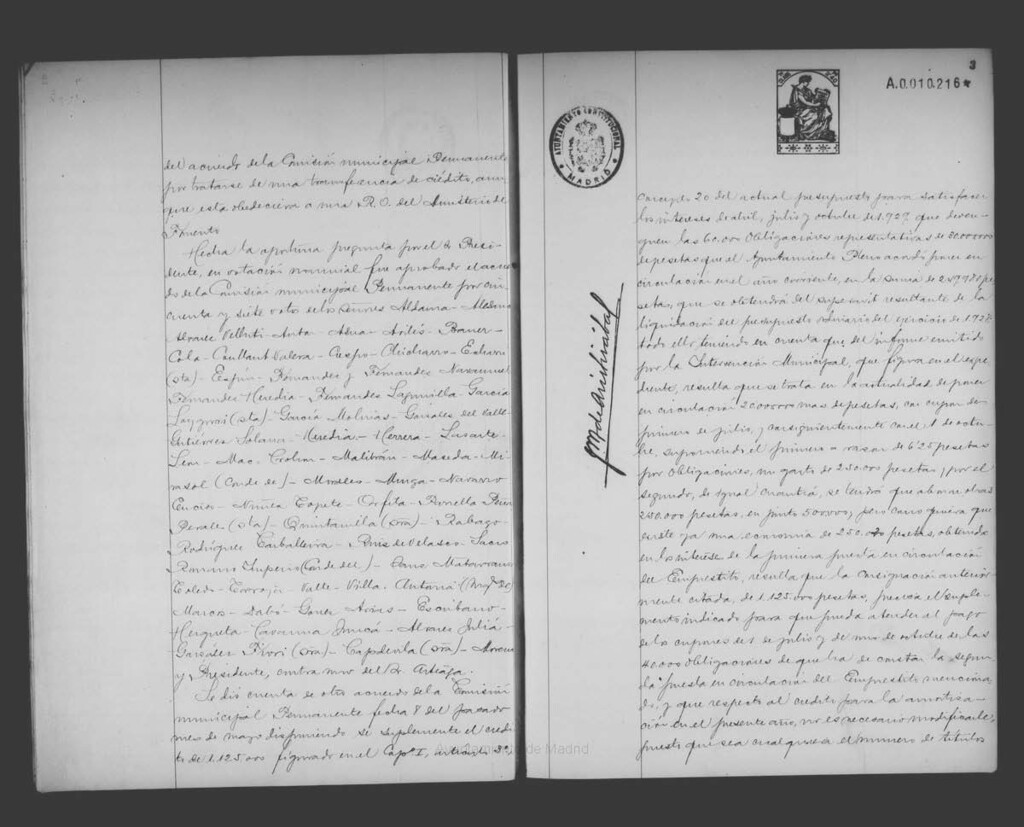 del acuerdo de la Comisión municipal Permanente
por tratarse de una transferencia de crédito, aun
que esta obedeciera a una R.O. del Ministerio de
Fomento
Hecha la oportuna pregunta por el Sr Presi
dente, en votación nominal fue aprobado el acuer
do de la Comisión municipal Permanente por cin
cuenta y siete votos de los señores Aldama - Medina
Alvarez Velluti - Antón - Azua - Avilés - Bauer -
Cola - Coullaut Valera - Crespo - Chicharro - Echarri
(sta) - Espín - Fernández y Fernández Navamuel
Fernández Heredia - Fernández - García
(sta) - García Molinas - González del Valle
Gutiérrez Solana - Heredia - Herrera - Lasarte -
Mac. Crohon - Malibrán - Maseda - Mi
rasol (Conde de) - Morales - Munga - Navarro
Enciso - Núñez Topete - Orfila -
Perales (sta) - Quintanilla (sra) - Rábago -
Rodríguez Carballeira - Ruiz de Velasco - Sacro
Romano Imperio (Conde del) - Sanz Matamoros
Toledo - Torroja - Valle - Villa Antonia (Mqs de)
Marcos - Sabó - Arias - Escribano -
Hergueta - Alvarez Juliá -
González (sra) - Capdevila (sra) - Moreno
y Presidente, contra uno del Sr Arteaga.
Se dió cuenta de otro acuerdo de la Comisión
municipal Permanente fecha 8 del pasado
mes de mayo disponiendo se suplemente el crédi
to de 1.125.000 figurado en el Capº I, artículo 3º,
3
A.0.010.216*
AYUNTAMIENTO CONSTITUCIONAL
* MADRID *
concepto 20 del actual presupuesto para satisfacer
los intereses de abril, julio y octubre de 1.929 que deven
guen las 60.000 Obligaciones representativas de 30.000.000
de pesetas que el Ayuntamiento Pleno acordó poner en
circulación en el año corriente, en la suma de pe
setas, que se obtendrá del superavit resultante de la
liquidación del presupuesto ordinario del ejercicio de 1.928
todo ello teniendo en cuenta que del informe emitido
por la Intervención Municipal, que figura en el expe
diente, resulta que se trata en la actualidad de poner
en circulación 20.000.000 mas de pesetas, con cupon de
primero de julio, y consiguientemente con el 1º de octu
bre, suponiendo el primero a razon de 6'25 pesetas
por Obligaciones, un gasto de 250.000 pesetas, y por el
segundo, de igual cuantía, se tendrá que abonar otras
250.000 pesetas, en junto 500.000; pero como quiera que
existe ya una economia de 250. pesetas, obtenida
en los intereses de la primera puesta en circulación
del Emprestito, resulta que la consignación anterior
mente citada, de 1.125.000 pesetas, precisa el suple
mento indicado para que pueda atender al pago
de los cupones de 1º de julio y de uno de octubre de las
40.000 Obligaciones de que ha de constar la segun
da puesta en circulación del Emprestito menciona
do, y que respecto al credito para la amortiza
ción en el presente año, no es necesario modificarle,
puesto que sea cualquiera el numero de titulos
Ayuntamiento de Madrid